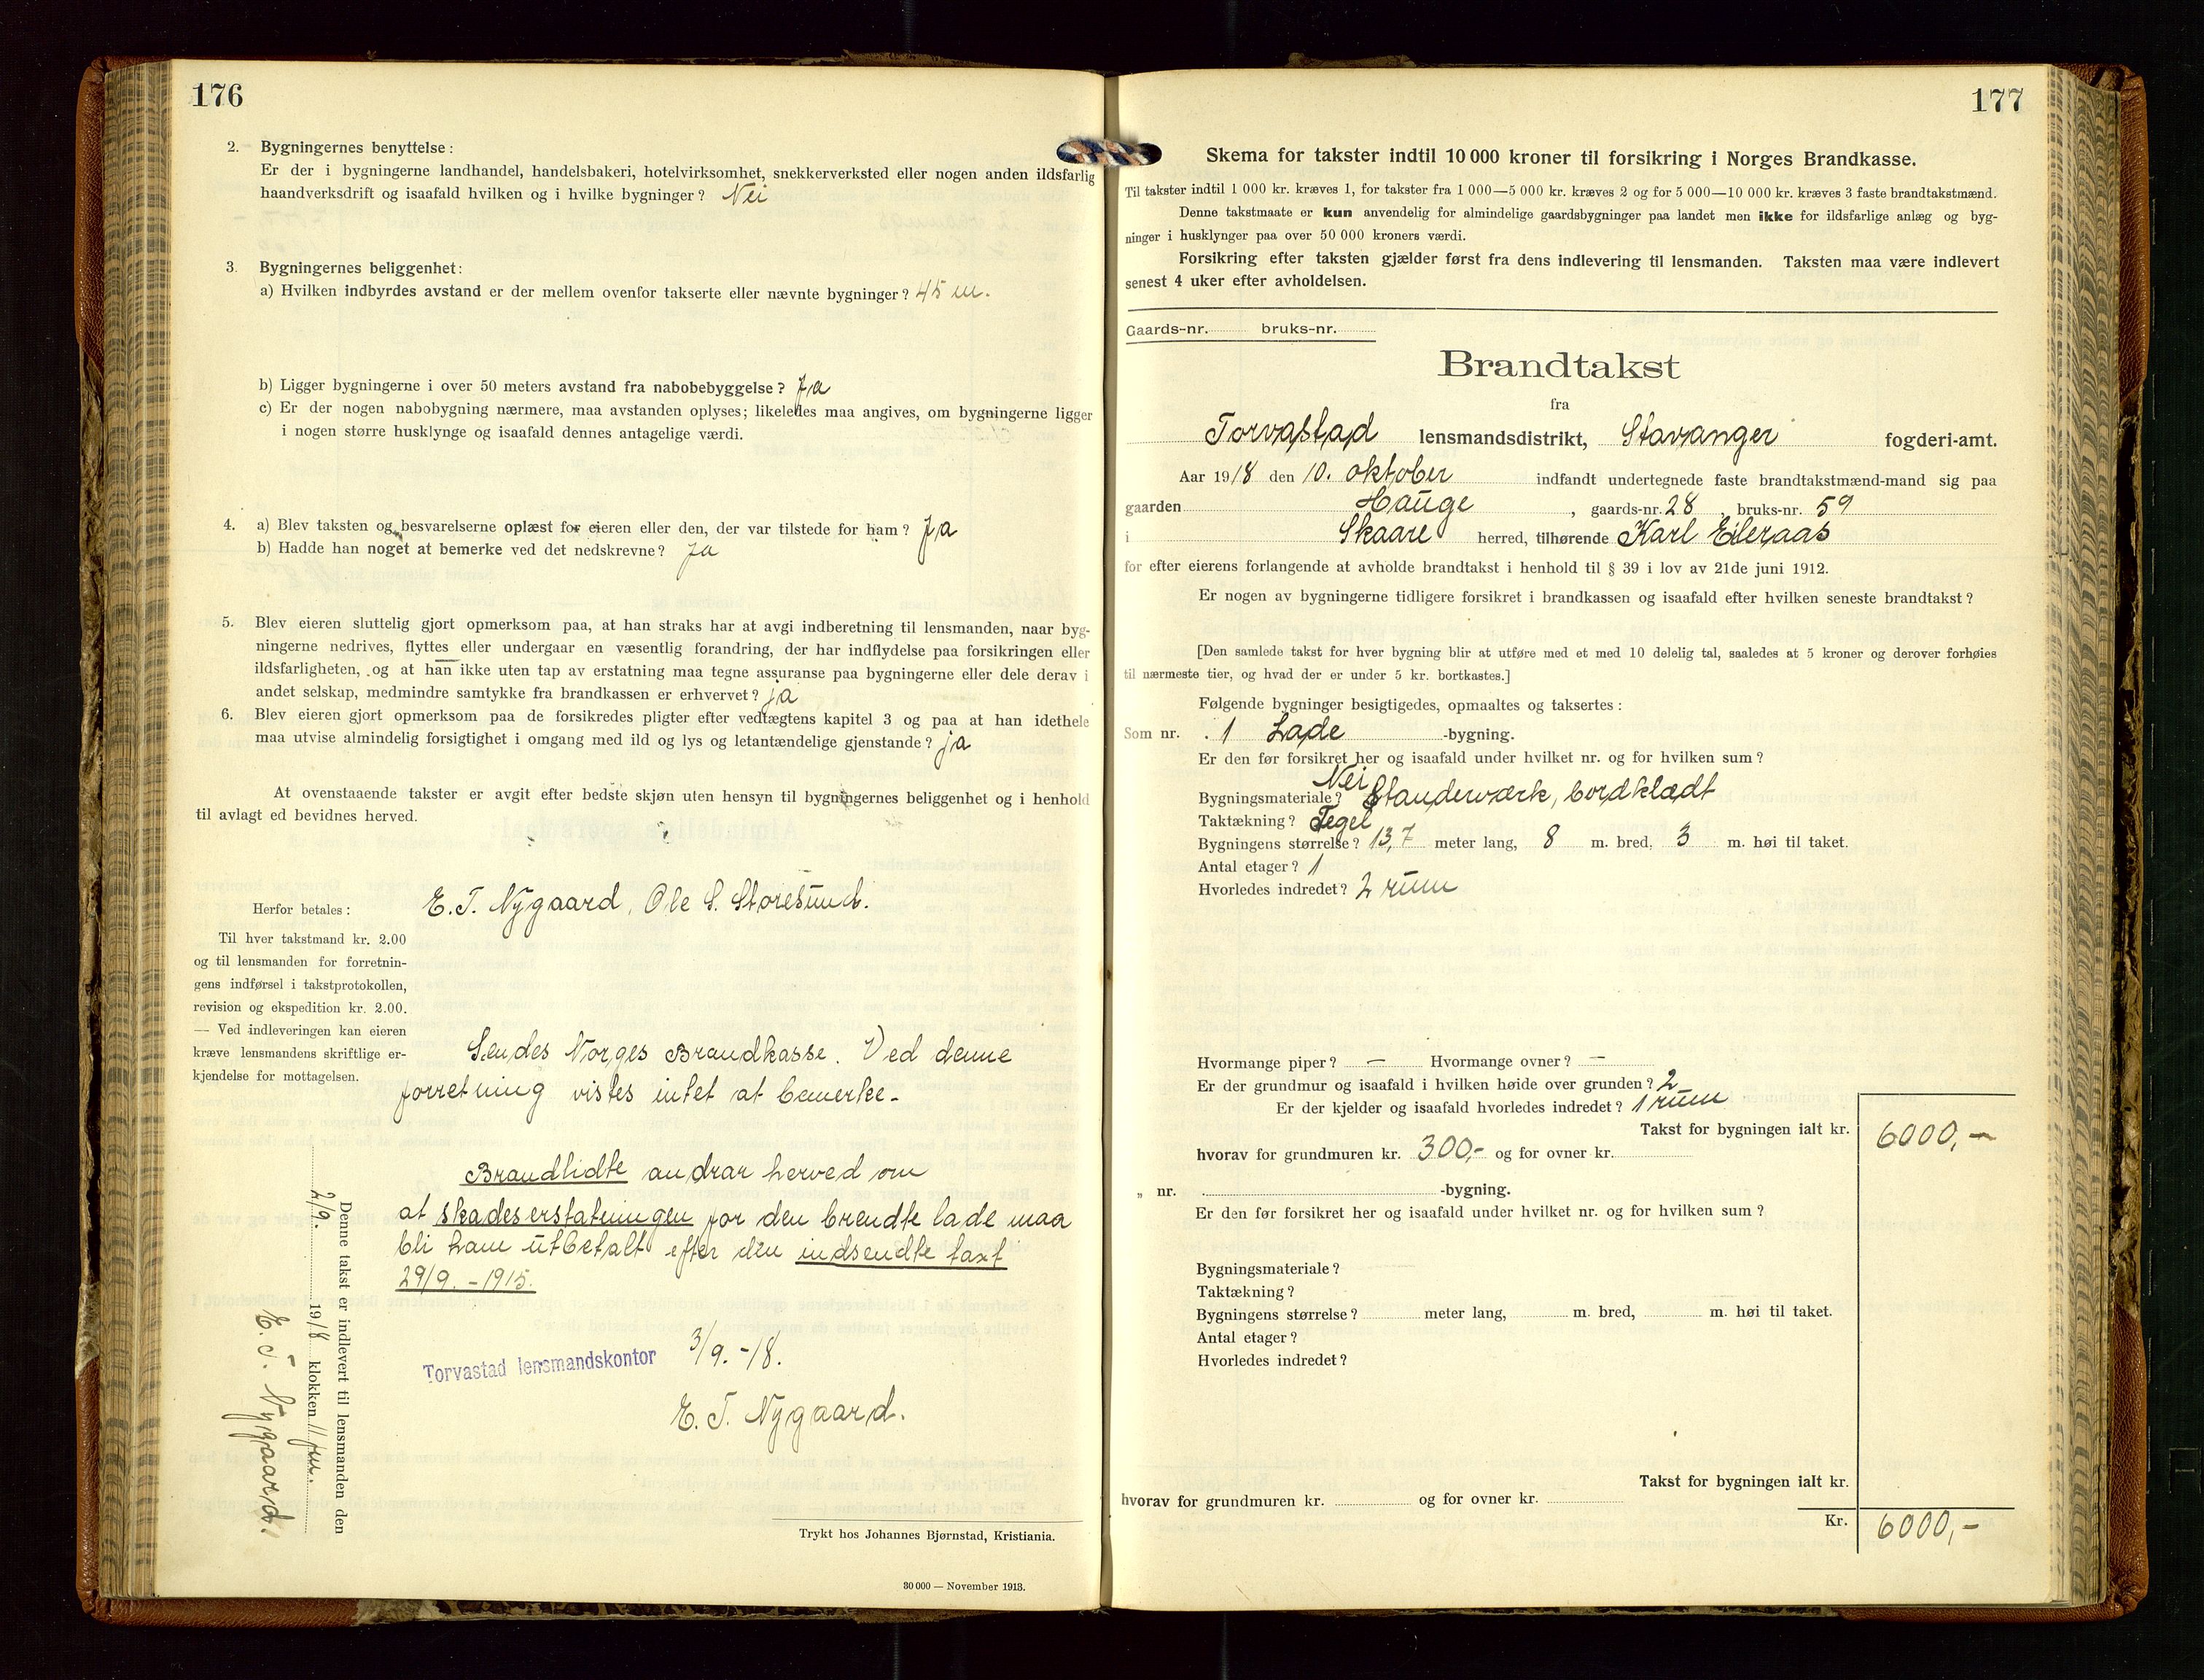 176
2. Bygningernes benyttelse:
Er der i bygningerne landhandel, handelsbakeri, hotelvirksomhet, snekkerverksted eller nogen anden ildsfarlig
haandverksdrift og isaafald hvilken og i hvilke bygninger? Nei
3. Bygningernes beliggenhet:
a) Hvilken indbyrdes avstand er der mellem ovenfor takserte eller nævnte bygninger? 45 m.
b) Ligger bygningerne i over 50 meters avstand fra nabobebyggelse? Ja
c) Er der nogen nabobygning nærmere, maa avstanden oplyses; likeledes maa angives, om bygningerne ligger
i nogen større husklynge og isaafald dennes antagelige værdi.
4. a) Blev taksten og besvarelserne oplæst for eieren eller den, der var tilstede for ham? Ja
b) Hadde han noget at bemerke ved det nedskrevne? Ja
5. Blev eieren sluttelig gjort opmerksom paa, at han straks har at avgi indberetning til lensmanden, naar byg-
ningerne nedrives, flyttes eller undergaar en væsentlig forandring, der har indflydelse paa forsikringen eller
ildsfarligheten, og at han ikke uten tap av erstatning maa tegne assuranse paa bygningerne eller dele derav i
andet selskap, medmindre samtykke fra brandkassen er erhvervet? ja
6. Blev eieren gjort opmerksom paa de forsikredes pligter efter vedtægtens kapitel 3 og paa at han idethele
maa utvise almindelig forsigtighet i omgang med ild og lys og letantændelige gjenstande? ja
At ovenstaaende takster er avgit efter bedste skjøn uten hensyn til bygningernes beliggenhet og i henhold
til avlagt ed bevidnes herved.
E. T. Nygaard, Ole S. Storesund.
Herfor betales:
Til hver takstmand kr. 2.00
og til lensmanden for forretnin-
gens indførsel i takstprotokollen,
revision og ekspedition kr. 2.00.
— Ved indleveringen kan eieren
kræve lensmandens skriftlige er-
kjendelse for mottagelsen.
Sendes Norges Brandkasse. Ved denne
forretning vistes intet at bemerke.
Brandlidte andrar herved om
at skadeserstatningen for den brendte lade maa
bli ham utbetalt efter den indsendte taxt
29/9. - 1915.
Torvastad lensmandskontor 3/9. -18.
E. T. Nygaard.
Denne takst er indlevert til lensmanden den
2/9. 1918 klokken 11 fm.
E. T. Nygaard.
Trykt hos Johannes Bjørnstad, Kristiania.
30 000 — November 1913.
177
Skema for takster indtil 10 000 kroner til forsikring i Norges Brandkasse.
Til takster indtil 1 000 kr. kræves 1, for takster fra 1 000—5 000 kr. kræves 2 og for 5 000—10 000 kr. kræves 3 faste brandtakstmænd.
Denne takstmaate er kun anvendelig for almindelige gaardsbygninger paa landet men ikke for ildsfarlige anlæg og byg-
ninger i husklynger paa over 50 000 kroners værdi.
Forsikring efter taksten gjælder først fra dens indlevering til lensmanden. Taksten maa være indlevert
senest 4 uker efter avholdelsen.
Gaards-nr. bruks-nr.
Brandtakst
fra
Torvastad lensmandsdistrikt, Stavanger fogderi-amt.
Aar 1918 den 10. oktober indfandt undertegnede faste brandtakstmænd-mand sig paa
gaarden Hauge, gaards-nr. 28, bruks-nr. 59
i Skaare herred, tilhørende Karl Eileraas
for efter eierens forlangende at avholde brandtakst i henhold til § 39 i lov av 21de juni 1912.
Er nogen av bygningerne tidligere forsikret i brandkassen og isaafald efter hvilken seneste brandtakst?
[Den samlede takst for hver bygning blir at utføre med et med 10 delelig tal, saaledes at 5 kroner og derover forhøies
til nærmeste tier, og hvad der er under 5 kr. bortkastes.]
Følgende bygninger besigtigedes, opmaaltes og taksertes:
Som nr. 1 Lade -bygning.
Er den før forsikret her og isaafald under hvilket nr. og for hvilken sum?
Nei
Bygningsmateriale? Standerværk, bordklædt
Taktækning? Tegel
Bygningens størrelse? 13,7 meter lang, 8 m. bred, 3 m. høi til taket.
Antal etager? 1
Hvorledes indredet? 2 rum
Hvormange piper? — Hvormange ovner? —
Er der grundmur og isaafald i hvilken høide over grunden? 2
Er der kjelder og isaafald hvorledes indredet? 1 rum
Takst for bygningen ialt kr. 6000,—
hvorav for grundmuren kr. 300,- og for ovner kr.
„ nr. -bygning.
Er den før forsikret her og isaafald under hvilket nr. og for hvilken sum?
Bygningsmateriale?
Taktækning?
Bygningens størrelse? meter lang, m. bred, m. høi til taket.
Antal etager?
Hvorledes indredet?
Takst for bygningen ialt kr.
hvorav for grundmuren kr. og for ovner kr.
Kr. 6000,-